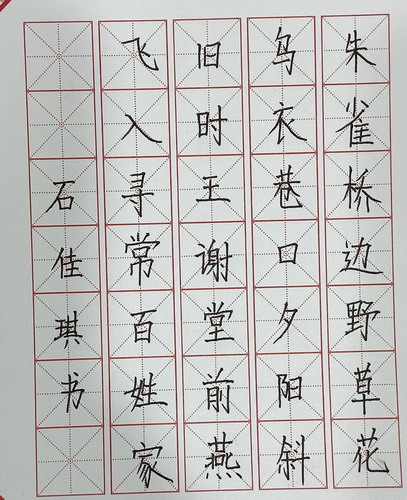 朱雀桥边野草花
乌衣巷口夕阳斜
旧时王谢堂前燕
飞入寻常百姓家
石佳琪书